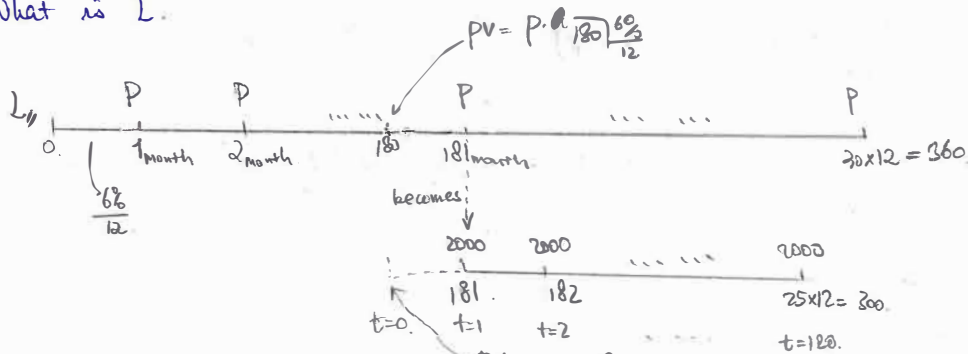 What is L.
PV = P. a 180 6%/12
L,, P P ...... P ...... P
0. 1 month 2 month 180 181 month 30x12 = 360
6%/12
becomes
2000 2000 ...... 2000
181. 182 25x12= 300.
t=0. t=1 t=2 ...... t=120.